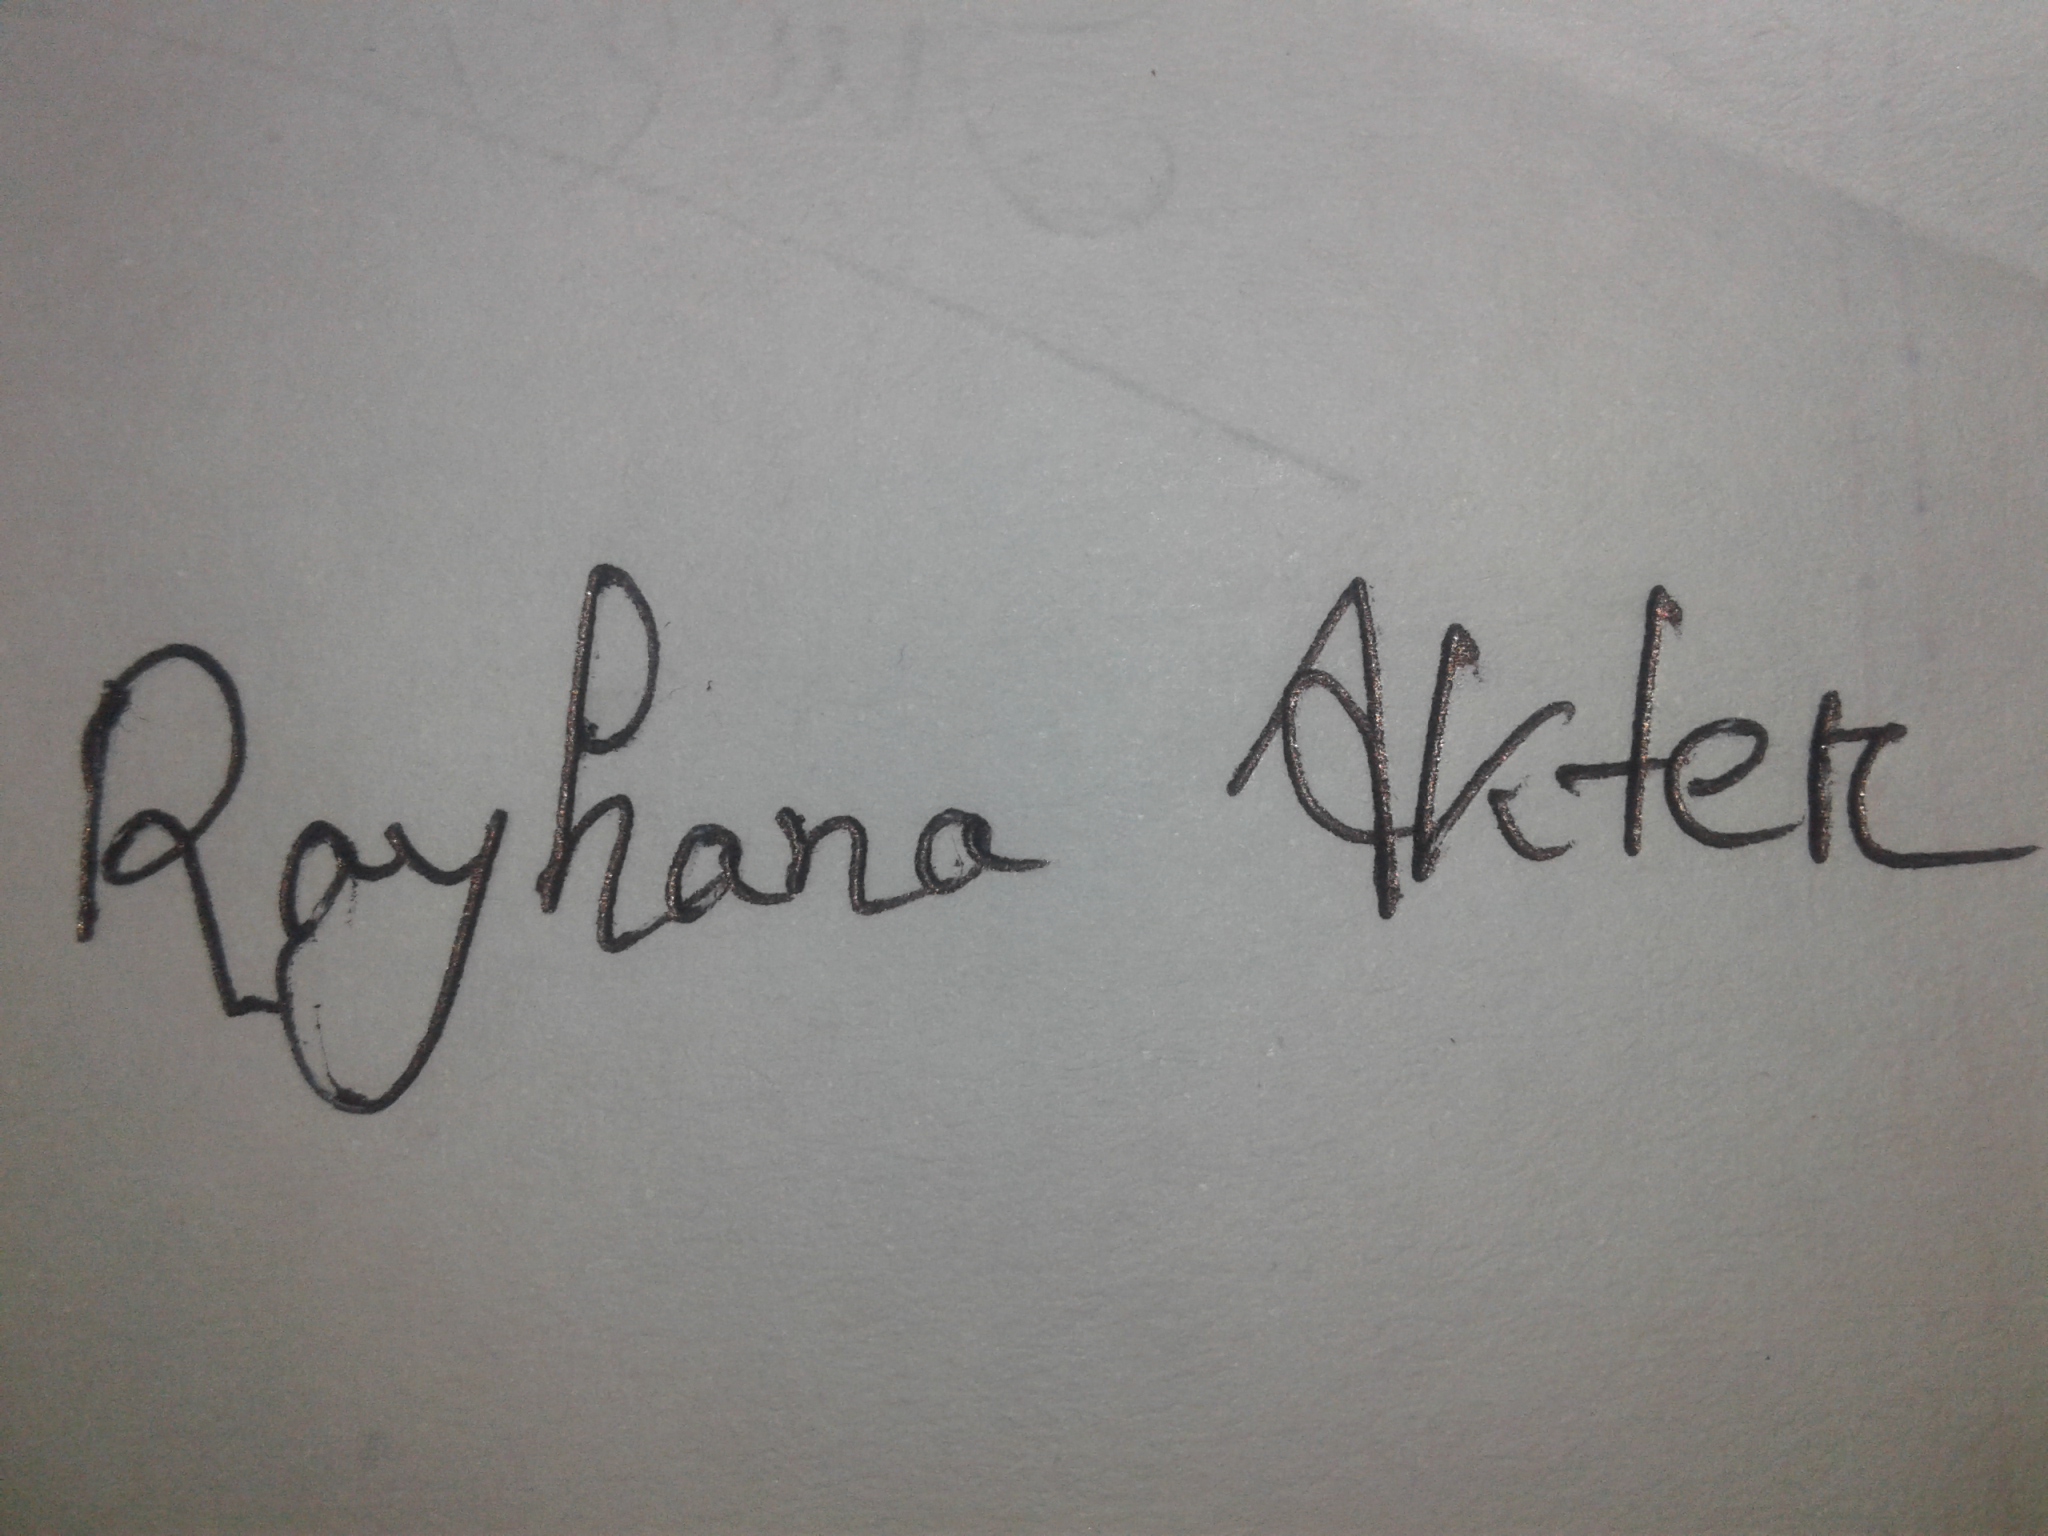 Rayhana Akter